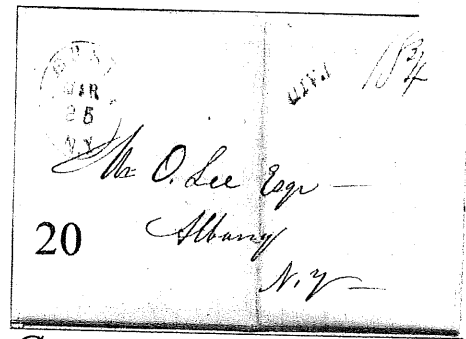 MAR
25
N.Y.
PAID
18¾
Wm O. Lee Esqr —
Albany
N. Y —
20